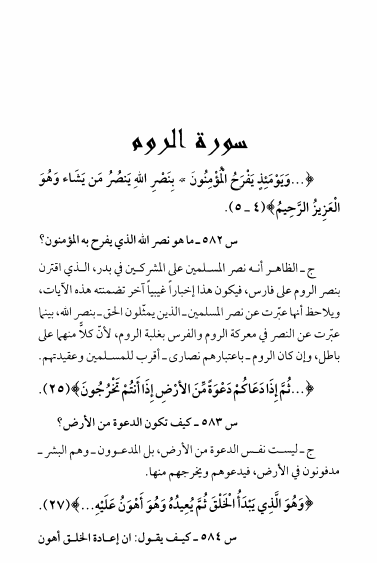 سورة الروم
﴿...وَيَوْمَئِذٍ يَفْرَحُ الْمُؤْمِنُونَ * بِنَصْرِ اللهِ يَنصُرُ مَن يَشَاء وَهُوَ
الْعَزِيزُ الرَّحِيمُ﴾(٤ ـ ٥).
س ٥٨٢ ـ ما هو نصر الله الذي يفرح به المؤمنون؟
ج ـ الظاهر أنه نصر المسلمين على المشركين في بدر، الذي اقترن
بنصر الروم على فارس، فيكون هذا إخباراً غيبياً آخر تضمنته هذه الآيات،
ويلاحظ أنها عبّرت عن نصر المسلمين ـ الذين يمثّلون الحق ـ بنصر الله، بينما
عبّرت عن النصر في معركة الروم والفرس بغلبة الروم، لأنّ كلاً منهما على
باطل، وإن كان الروم ـ باعتبارهم نصارى ـ أقرب للمسلمين وعقيدتهم.
﴿...ثُمَّ إِذَا دَعَاكُمْ دَعْوَةً مِّنَ الأَرْضِ إِذَا أَنتُمْ تَخْرُجُونَ﴾(٢٥).
س ٥٨٣ ـ كيف تكون الدعوة من الأرض؟
ج ـ ليست نفس الدعوة من الأرض، بل المدعوون ـ وهم البشر ـ
مدفونون في الأرض، فيدعوهم ويخرجهم منها.
﴿وَهُوَ الَّذِي يَبْدَأُ الْخَلْقَ ثُمَّ يُعِيدُهُ وَهُوَ أَهْوَنُ عَلَيْهِ...﴾(٢٧).
س ٥٨٤ ـ كيف يقول: ان إعادة الخلق أهون